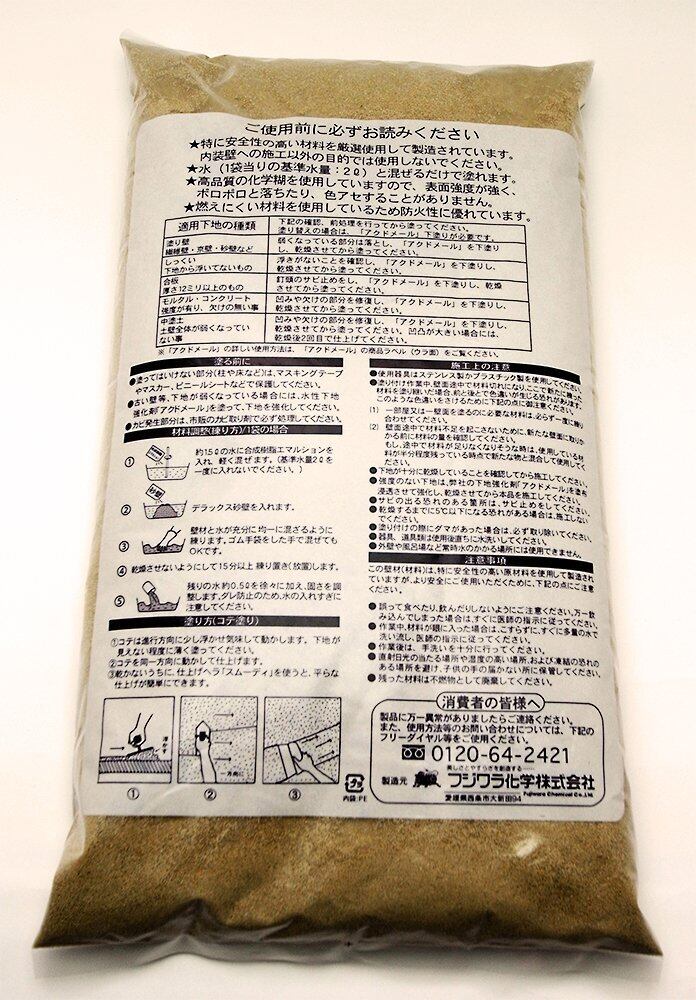 ご使用前に必ずお読みください
★特に安全性の高い材料を厳選使用して製造されています。
内装壁への施工以外の目的では使用しないでください。
★水（1袋当りの基準水量：2ℓ）と混ぜるだけで塗れます。
★高品質の化学糊を使用していますので、表面強度が強く、
ボロボロと落ちたり、色アセすることがありません。
★燃えにくい材料を使用しているため防火性に優れています。
適用下地の種類
下記の確認、前処理を行ってから塗ってください。
塗り替えの場合は、「アクドメール」下塗りが必要です。
塗り壁
繊維壁・京壁・砂壁など
弱くなっている部分は落とし、「アクドメール」を下塗り
し、乾燥させてから塗ってください。
しっくい
下地から浮いてないもの
浮きがないことを確認し、「アクドメール」を下塗りし、
乾燥させてから塗ってください。
合板
厚さ12ミリ以上のもの
釘頭のサビ止めをし、「アクドメール」を下塗りし、乾燥
させてから塗ってください。
モルタル・コンクリート
強度が有り、欠けの無い事
凹みや欠けの部分を修復し、「アクドメール」を下塗りし、
乾燥させてから塗ってください。
中塗土
土壁全体が弱くなってい
ない事
凹みや欠けの部分を修復し、「アクドメール」を下塗りし、
乾燥させてから塗ってください。凹凸が大きい場合には、
乾燥後2回目で仕上げてください。
※「アクドメール」の詳しい使用方法は、「アクドメール」の商品ラベル（ウラ面）をご覧ください。
塗る前に
●塗ってはいけない部分(柱や床など)は、マスキングテープ
やマスカー、ビニールシートなどで保護してください。
●古い壁等、下地が弱くなっている場合には、水性下地
強化剤「アクドメール」を塗って、下地を強化してください。
●カビ発生部分は、市販のカビ取り剤で必ず処理してください。
材料調整(練り方)/1袋の場合
① 約1.5ℓの水に合成樹脂エマルションを
入れ、軽く混ぜます。(基準水量2ℓを
一度に入れないでください。)
砂壁
② デラックス砂壁を入れます。
③ 壁材と水が充分に均一に混ざるように
練ります。ゴム手袋をした手で混ぜても
OKです。
④ 乾燥させないようにして15分以上練り置き(放置)します。
⑤ 残りの水約0.5ℓを徐々に加え、固さを調
整します。ダレ防止のため、水の入れすぎに
注意してください。
塗り方(コテ塗り)
①コテは進行方向に少し浮かせ気味して動かします。下地が
見えない程度に薄く塗ってください。
②コテを同一方向に動かして仕上げます。
③乾かないうちに、仕上げヘラ「スムーディ」を使うと、平らな
仕上げが簡単にできます。
浮かす
一方向に
① ② ③
内袋:PE
施工上の注意
●使用器具はステンレス製かプラスチック製を使用してください。
●塗り付け作業中、壁面途中で材料切れになり、ここで新たに練った
材料を塗り継いだ場合、前と後とで色違いが生じる恐れがあります。
このような色違いをさけるために下記の点に御注意ください。
(1) 一部屋又は一壁面を塗るのに必要な材料は、必らず一度に練り
合わせてください。
(2) 壁面途中で材料不足を起こさないために、新たな壁面に取りか
かる前に材料の量を確認してください。
もし、途中で材料が足りなくなりそうな時は、使用している材
料が半分程度残っている時点で新たな物と混合して使用してく
ださい。
●下地が十分に乾燥していることを確認してから施工してください。
●強度のない下地は、弊社の下地強化剤「アクドメール」を塗布
浸透させて強化し、乾燥させてから本品を施工してください。
●サビの出る恐れのある箇所は、サビ止めをしてください。
●乾燥するまでに5℃以下になる恐れがある場合は、施工しない
でください。
●塗り付けの際にダマがあった場合は、必ず取り除いてください。
●器具、道具類は使用後直ちに水洗いしてください。
●外壁や風呂場など常時水のかかる場所には使用できません。
注意事項
この壁材(材料)は、特に安全性の高い原材料を使用して製造され
ていますが、より安全にご使用いただくために、下記の点にご注
意ください。
●誤って食べたり、飲んだりしないようにご注意ください。万一飲
み込んでしまった場合は、すぐに医師の指示に従ってください。
●作業中、材料が眼に入った場合は、こすらずに、すぐに多量の水で
洗い流し、医師の指示に従ってください。
●作業後は、手洗いを十分に行ってください。
●直射日光の当たる場所や湿度の高い場所、および凍結の恐れの
ある場所を避け、子供の手の届かない所に保管してください。
●残った材料は不燃物として廃棄してください。
消費者の皆様へ
製品に万一異常がありましたらご連絡ください。
また、使用方法等のお問い合わせについては、下記の
フリーダイヤル等をご使用ください。
0120-64-2421
美しさとやすらぎを創造する
製造元 フジワラ化学株式会社
Fujiwara Chemical Co.,Ltd.
愛媛県西条市大新田94